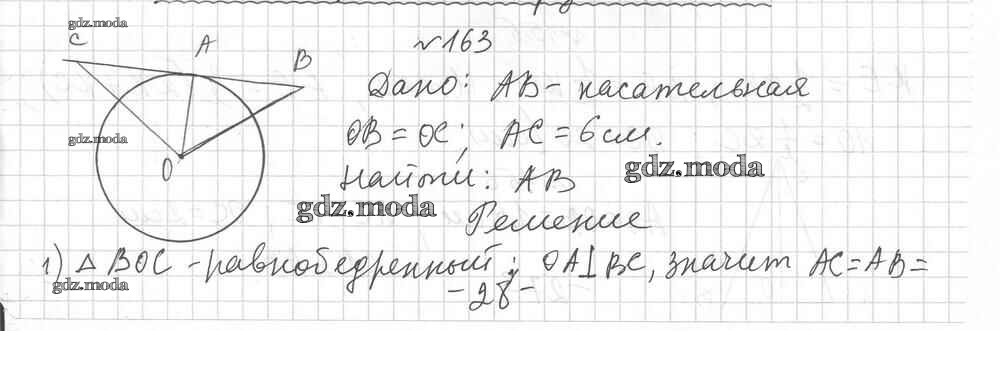 gdz.moda
C A B
№163
Дано: AB - касательная
gdz.moda
OB = OC; AC = 6 см.
gdz.moda
Найти: AB
gdz.moda
O
Решение
1) △ BOC - равнобедренный; OA⊥BC, значит AC=AB=
gdz.moda
- 28 -